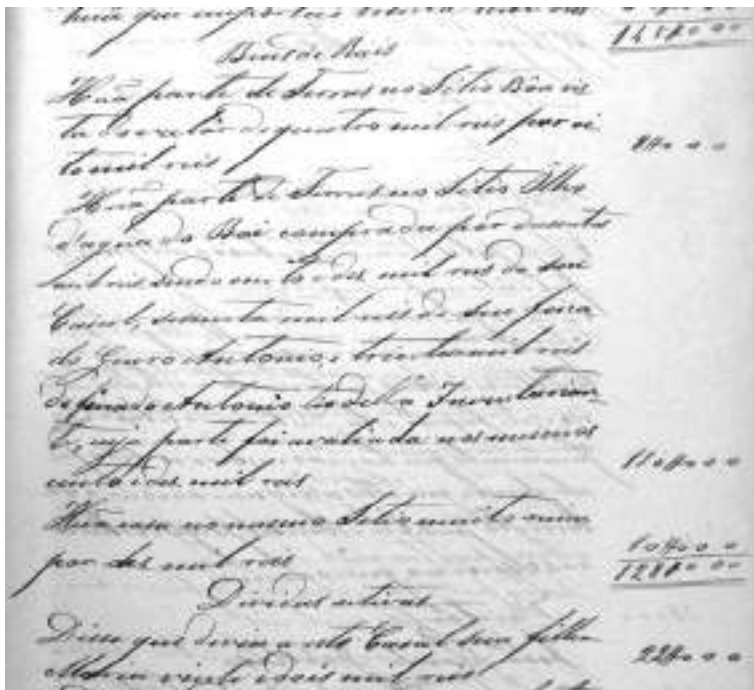 Bens de Rais
Húa parte de Terras no Sitio Bôa vis
ta do valor de quatro mil reis por oi
to mil reis 8$000
Húa parte de Terras no Sitio Ôlho
d'agua do Boi comprada por dusentos
mil reis sendo cento e dez mil reis do seu
Casal, sessenta mil reis de
do Genro Antonio, e trinta mil reis
do finado Antonio Inventarian
te, cuja parte foi avaliada nos mesmos
cento e dez mil reis 110$000
Húa casa no mesmo Sitio muito
por dez mil reis 10$000
128$000
Dividas activas
Disse que devia a este Casal seu filho
vinte e dois mil reis 22$000